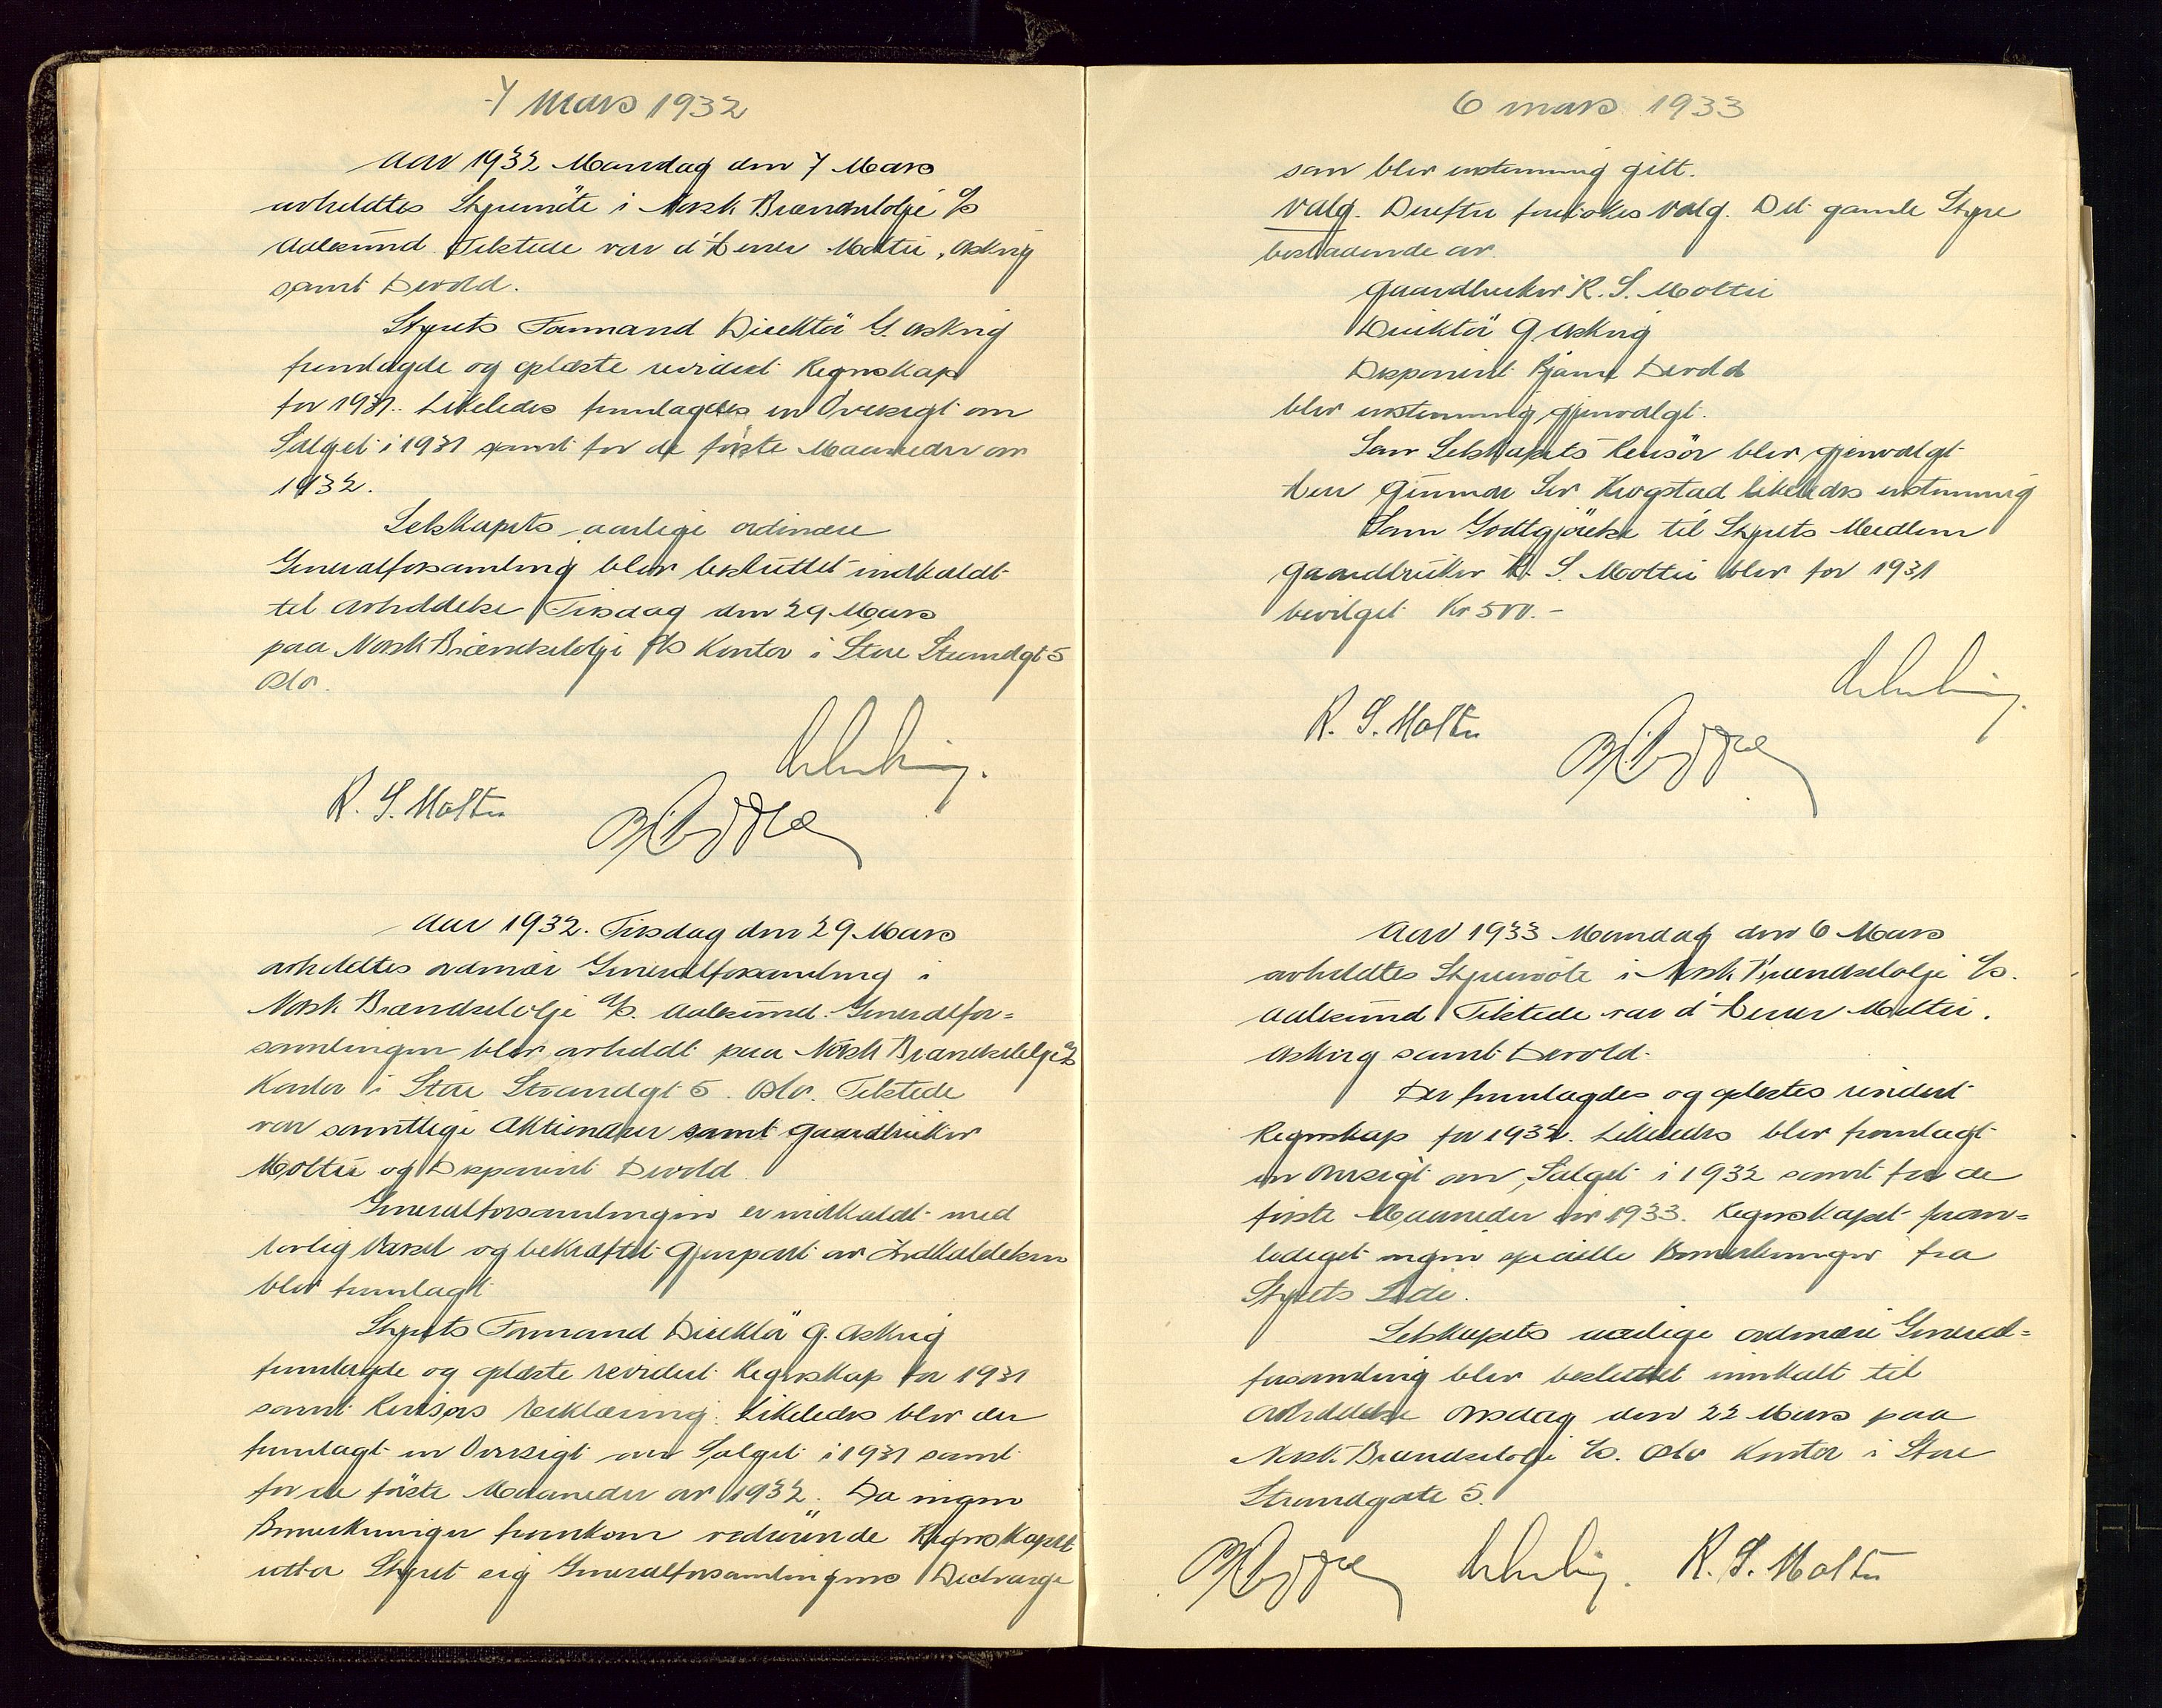 7 Mars 1932
Aar 1932 Mandag den 7 Mars
avholdtes Styremöte i Norsk Brændselolje A/S
Aalesund. Tilstede var d'Herrer Moltu, Askvig
samt Devold.
Styrets Formand Direktör G. Askvig
fremlagde og oplæste revidert Regnskap
for 1931. Likeledes fremlagdes en Oversigt om
Salget i 1931 samt for de förste Maaneder av
1932.
Selskapets aarlige ordinære
Generalforsamling blev besluttet indkaldt
til avholdelse Tirsdag den 29 Mars
paa Norsk Brændselolje A/S Kontor i Store Strandgt 5
Oslo.
R. S. Moltu
Aar 1932. Tirsdag den 29 Mars
avholdtes ordinær Generalforsamling i
Norsk Brændselolje A/S. Aalesund. Generalfor=
samlingen blev avholdt paa Norsk Brændselolje A/S
Kontor i Store Strandgt 5. Oslo. Tilstede
var samtlige Aktionærer samt Gaardbruker
Moltu og Disponent Devold.
Generalforsamlingen er indkaldt med
lovlig Varsel og bekræftet Gjenpart av Indkaldelsen
blev fremlagt
Styrets Formand Direktör G. Askvig
fremlagde og oplæste revidert Regnskap for 1931
samt Revisors Erklæring. Likeledes blev der
fremlagt en Oversigt over Salget i 1931 samt
for de förste Maaneder av 1932. Da ingen
Bemerkninger fremkom vedrörende Regnskapet
utba Styret sig Generalforsamlingens Decharge
6 mars 1933
som blev enstemmig gitt.
Valg. Derefter foretokes Valg. Det gamle Styre
bestaaende av
Gaardbruker R. S. Moltu
Direktör G Askvig
Disponent Bjarne Devold
blev enstemmig gjenvalgt.
Som Selskapets Revisör blev gjenvalgt
Herr Gunnar Krogstad likeledes enstemmig
Som Godtgjörelse til Styrets Medlem
Gaardbruker R. S. Moltu blev for 1931
bevilget Kr 500.-
R. S. Moltu
Aar 1933 Mandag den 6 Mars
avholdtes Styremöte i Norsk Brændselolje A/S.
Aalesund Tilstede var d'Herrer Moltu.
Askvig samt Devold.
Der fremlagdes og oplestes revidert
Regnskap for 1932. Likeledes blev fremlagt
en Oversigt om Salget i 1932 samt for de
förste Maaneder av 1933. Regnskapet foran=
lediget ingen spesielle Bemerkninger fra
Styrets Side.
Selskapets aarlige ordinære General=
forsamling blev besluttet innkalt til
avholdelse Onsdag den 22 Mars paa
Norsk Brændselolje A/S. Oslo Kontor i Store
Strandgate 5.
R. S. Moltu